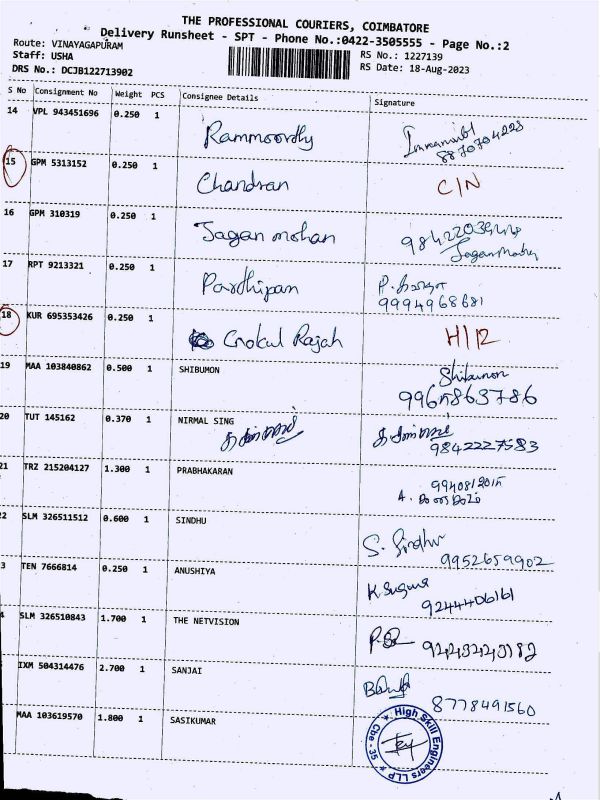 THE PROFESSIONAL COURIERS, COIMBATORE
Delivery Runsheet - SPT - Phone No.:0422-3505555 - Page No.:2
Route: VINAYAGAPURAM
Staff: USHA
DRS No.: DCJB122713902
RS No.: 1227139
RS Date: 18-Aug-2023
S No Consignment No Weight PCS Consignee Details Signature
14 VPL 943451696 0.250 1 Rammoordhy
8870704228
15 GPM 5313152 0.250 1 Chandran C/N
16 GPM 310319 0.250 1 Jagan mohan
17 RPT 9213321 0.250 1 Pardhipan
9994968681
18 KUR 695353426 0.250 1 Gokul Rajah H/12
19 MAA 103840862 0.500 1 SHIBUMON Shibumon
9965863786
20 TUT 145162 0.370 1 NIRMAL SING
9842227583
21 TRZ 215204127 1.300 1 PRABHAKARAN
22 SLM 326511512 0.600 1 SINDHU S. Sindhu
9952659902
3 TEN 7666814 0.250 1 ANUSHIYA K. Suguna
9244406161
SLM 326510843 1.700 1 THE NETVISION
IXM 504314476 2.700 1 SANJAI
8778491560
MAA 103619570 1.800 1 SASIKUMAR
High Skill Engineers LLP
Cbe - 35